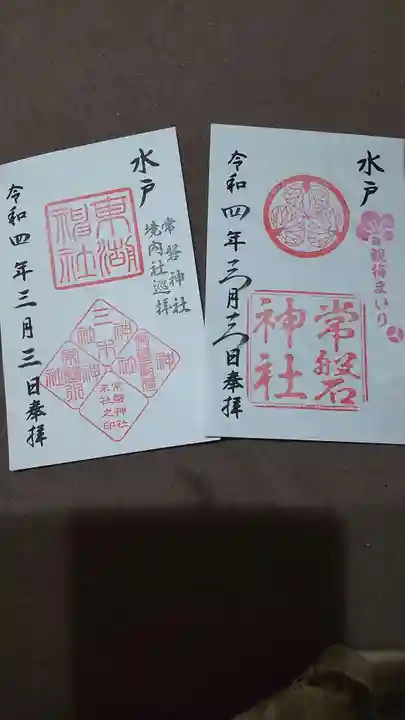 水戸
常磐神社
境内社巡拝
東湖神社
三木神社
常磐神社
末社之印
令和四年三月三日奉拝
水戸
観梅まいり
常磐神社
令和四年三月三日奉拝